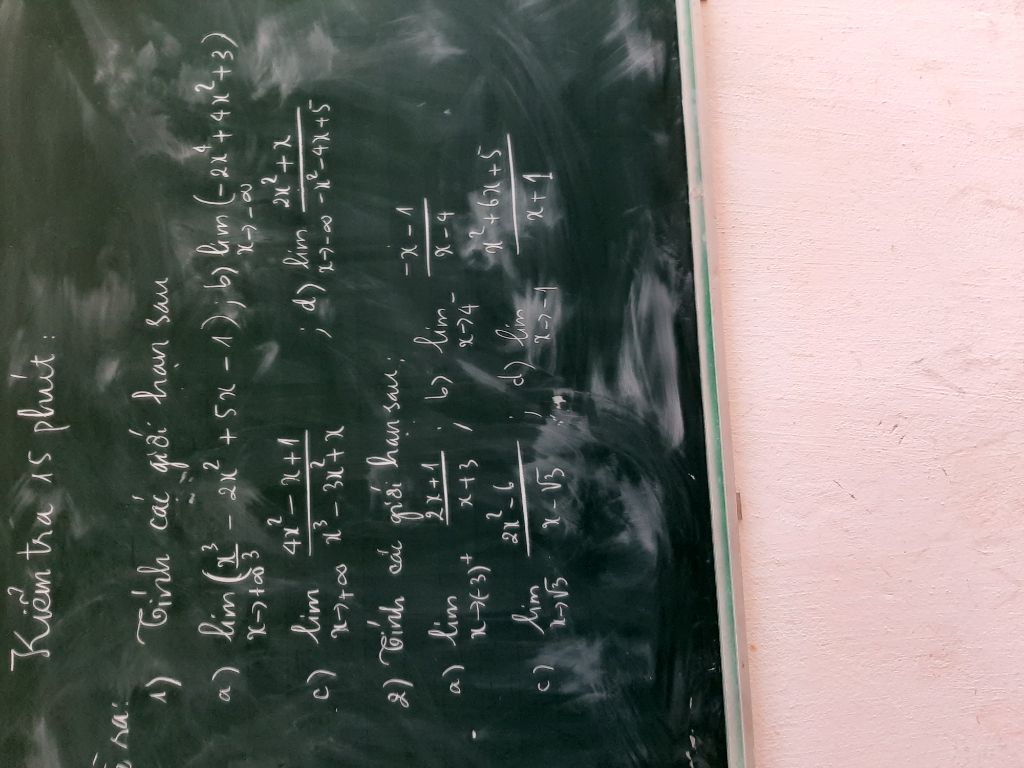 Kiểm tra 15 phút:
ra:
1) Tính các giới hạn sau
a) lim (x³/3 - 2x² + 5x - 1); b) lim (-2x⁴ + 4x² + 3)
x→+∞ x→-∞
c) lim (4x² - x + 1)/(x³ - 3x² + x) ; d) lim (2x² + x)/(-x² - 4x + 5)
x→+∞ x→-∞
2) Tính các giới hạn sau:
a) lim (2x + 1)/(x + 3) ; b) lim (-x - 1)/(x - 4)
x→(-3)⁺ x→4⁻
c) lim (2x² - 6)/(x - √3) ; d) lim (x² + 6x + 5)/(x + 1)
x→√3 x→-1